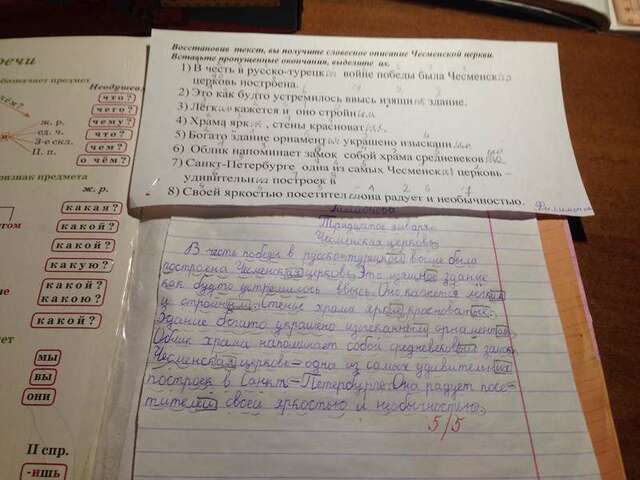 Восстановив текст, вы получите словесное описание Чесменской церкви.
Вставьте пропущенные окончания, выделите их.
1) В честь в русско-турецк войне победы была Чесменск ая
церковь построена.
2) Это как будто устремилось ввысь изящн здание.
3) Лёгк кажется и оно стройн
4) Храма ярк , стены красноват
5) Богато здание орнамент украшено изысканн
6) Облик напоминает замок собой храма средневеков
7) Санкт-Петербурге одна из самых Чесменск церковь –
удивительн построек в
8) Своей яркостью посетител она радует и необычностью.
речи
обозначает предмет
Неодушев.
что?
чего?
чему?
что?
чем?
о чём?
ж. р.
ед. ч.
3-е скл.
П. п.
признак предмета
ж. р.
какая?
какой?
какой?
какую?
какой?
какою?
какой?
мы
вы
они
II спр.
-ишь
Тридцатое января.
Чесменская церковь
В честь победы в русско-турецкой войне была
построена Чесменская церковь. Это изящное здание
как будто устремилось ввысь. Оно кажется лёгким
и стройным. Стены храма ярко красноватые.
Здание богато украшено изысканным орнаментом.
Облик храма напоминает собой средневековый замок.
Чесменская церковь – одна из самых удивительных
построек в Санкт-Петербурге. Она радует посе-
тителей своей яркостью и необычностью.
5/5